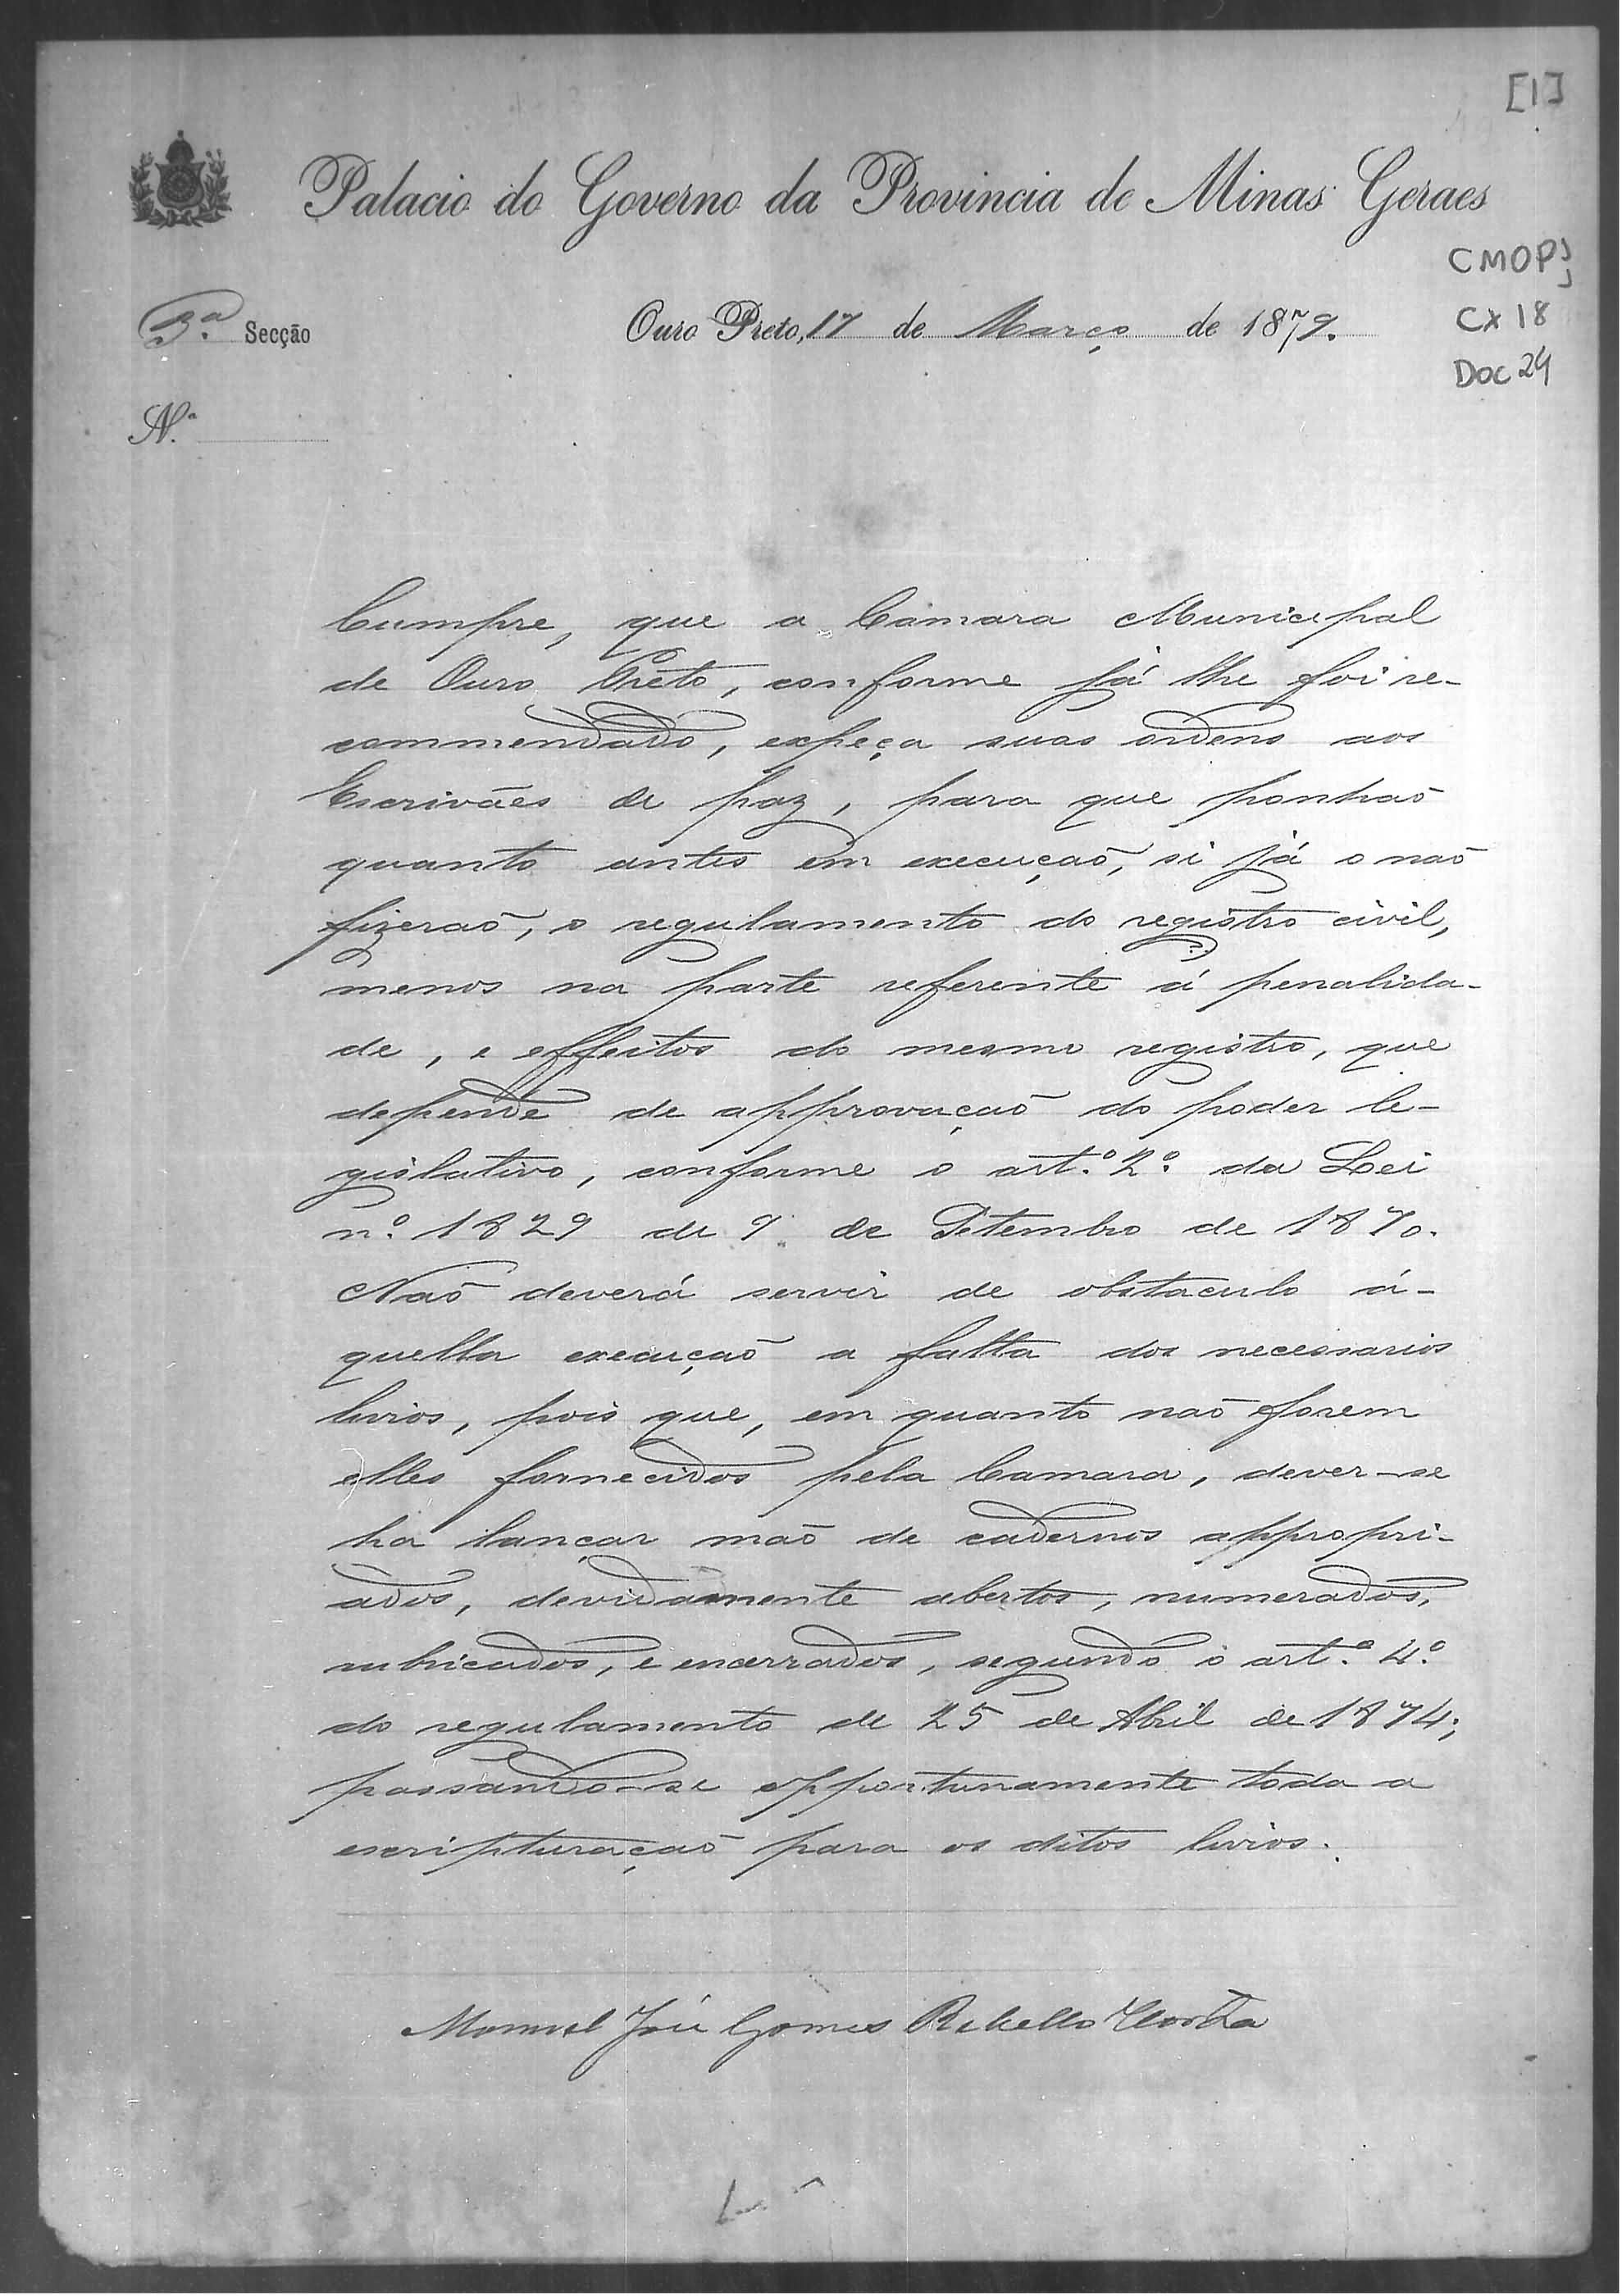 [1]
Palacio do Governo da Provincia de Minas Geraes
CMOP
3.ª Secção
Ouro Preto, 17 de Março de 1879.
CX 18
Doc 24
N.º
Cumpre, que a Camara Municipal
de Ouro Preto, conforme já lhe foi re-
commendado, expeça suas ordens aos
Escrivães de paz, para que ponhaõ
quanto antes em execuçaõ, si já o naõ
fizeraõ, o regulamento do registro civil,
menos na parte referente á penalida-
de, e effeitos do mesmo registro, que
depende de approvaçaõ do poder le-
gislativo, conforme o art.º 2º. da Lei
n.º 1829 de 9 de Setembro de 1870.
Naõ deverá servir de obstaculo á-
quella execuçaõ a falta dos necessarios
livros, pois que, em quanto naõ forem
elles fornecidos pela Camara, dever-se
ha lançar maõ de cadernos appropri-
ados, devidamente abertos, numerados,
rubricados, e encerrados, segundo o art.º 4.º
do regulamento de 25 de Abril de 1874;
passando-se opportunamente toda a
escripturaçaõ para os ditos livros.
Manuel José Gomes Rebello Horta